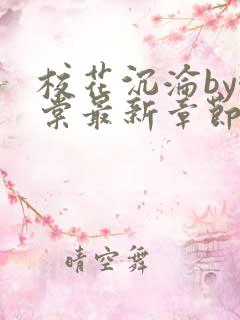 校花沉淪by
棠最新章節
晴空舞